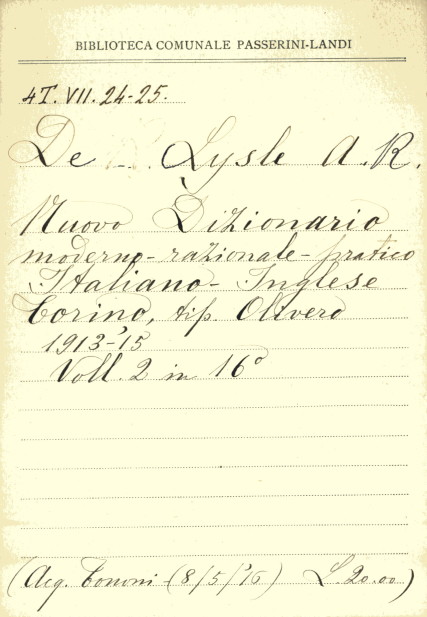 BIBLIOTECA COMUNALE PASSERINI-LANDI
4T. VII. 24-25.
De Lysle A. R.
Nuovo Dizionario
moderno - razionale - pratico
Italiano - Inglese
Torino, tip. Olivero
1913-'15
Voll. 2 in 16°
(Acq. Bononi - (8/5/'16) L. 20.00)